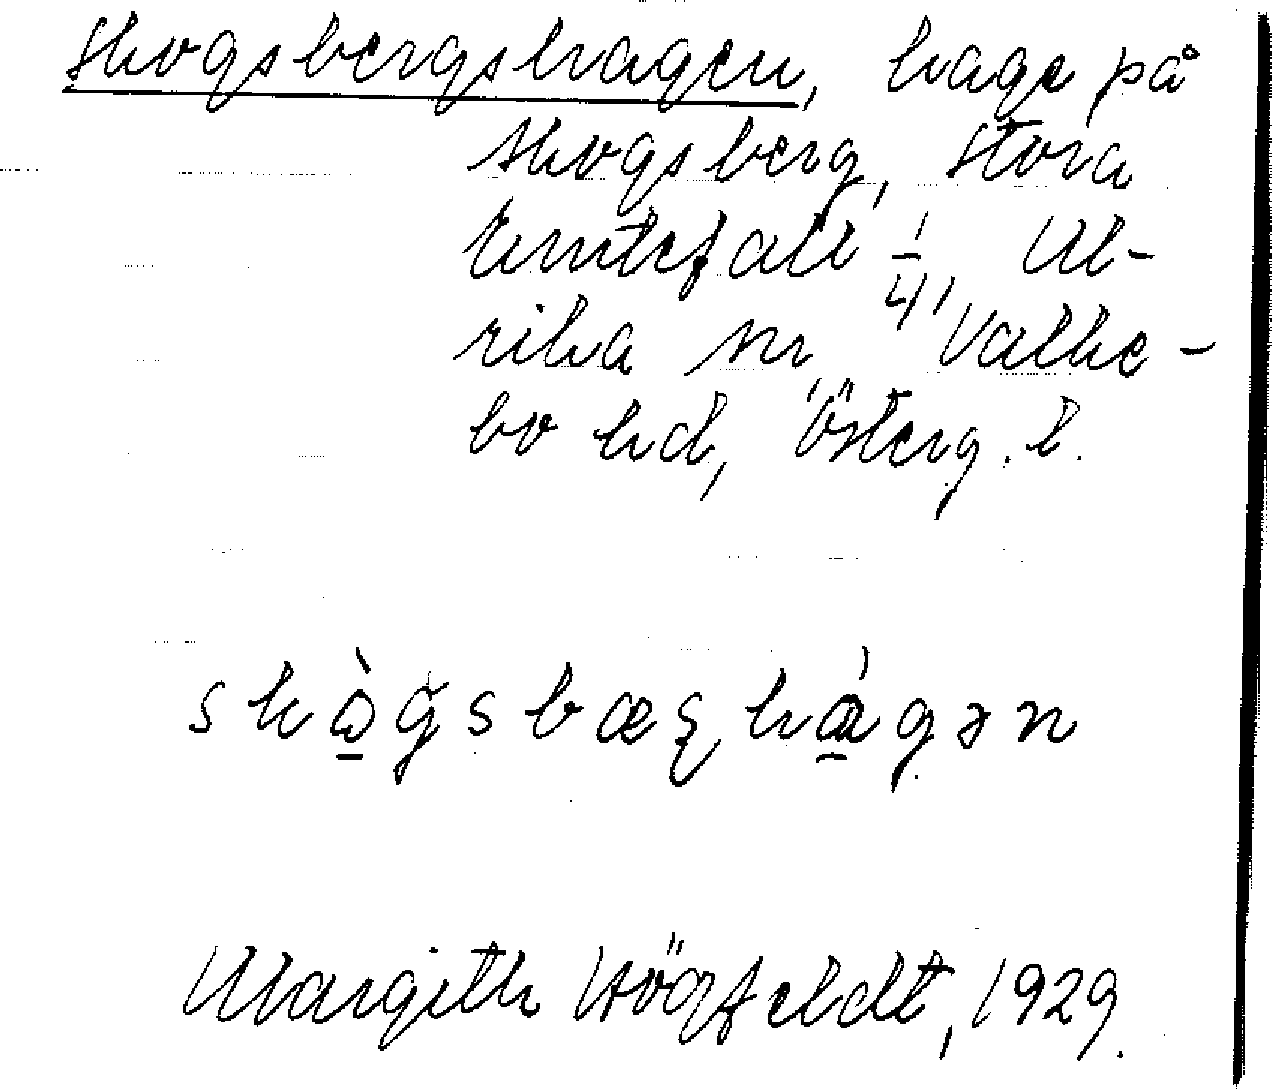 Skogsbergshagen, hage på
Skogsberg, Stora
Emtefall 1/4, Ul-
rika sn, Valke-
bo hd, Österg. l.
skò̠gsbæʂhá̠gən
Margith Högfeldt, 1929.